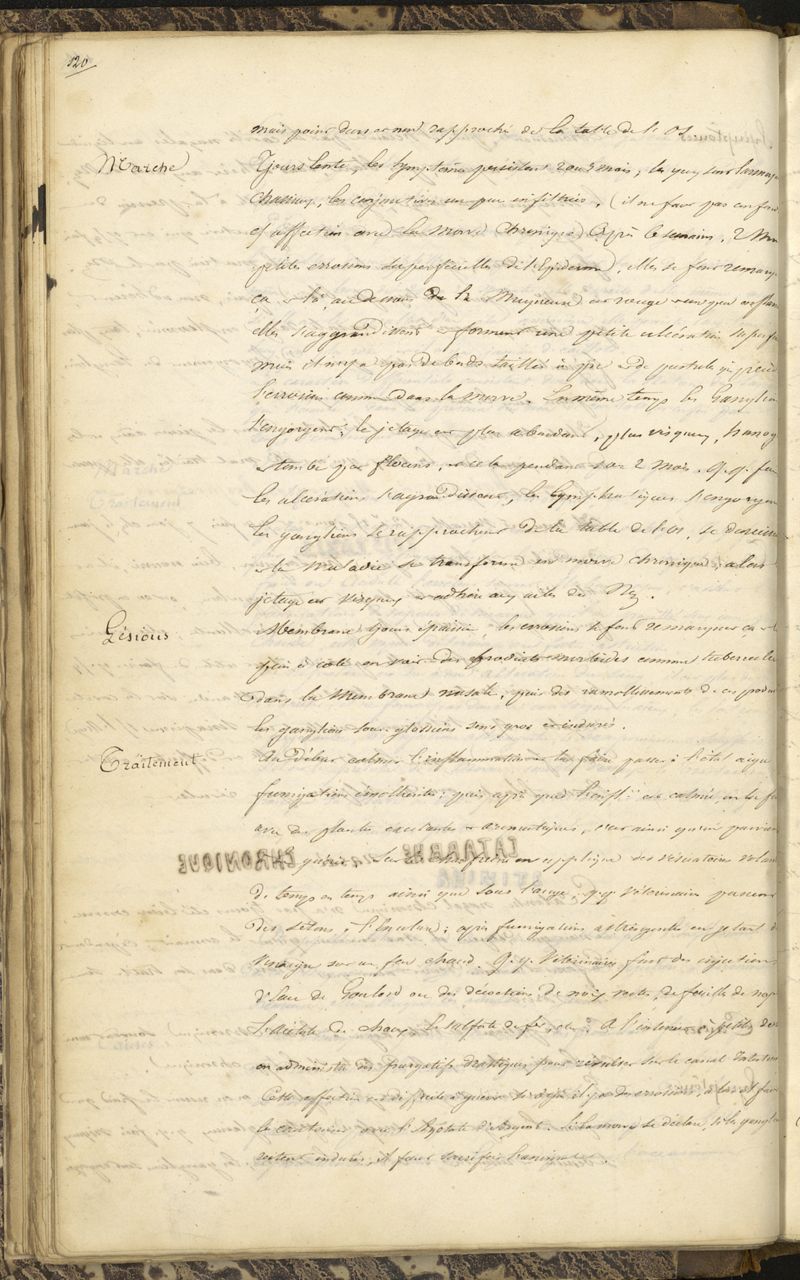 120
mais point durs et non rapproché de la table de l'os
Marche
Toujours lente, les symptômes persistent 2 ou 3 mois, les yeux sont larmoy
chassieux, les conjonctives un peu infiltrées, (il ne faut pas confond
cette affection avec la Morve Chronique) Après 6 semaines, 2 Mois
petites érosions superficielles de l'Epiderme, elles se font remarq
ça et là, au dessous de la Muqueuse est rouge un peu enflam
elles s'aggrandissent et forment une petite ulcération superfi
mais il n'y a pas de bords taillés à pic et de pustule qui précède
l'érosion comme dans la morve. En même temps les Ganglion
s'engorgent, le jetage est plus abondant, plus visqueux,
et tombe par flocons, cela pendant 1 ou 2 Mois. q.q. fois
les ulcérations s'agrandissent, les lymphatiques s'engorgen
les ganglions se rapprochent de la table de l'os, se durcissen
et la Maladie se transforme en morve chronique, alors
jetage est visqueux et adhère aux ailes du Nez.
Lésions
Membrane épaissie, les érosions se font remarquer ça et
puis à côté on voit des produits morbides comme tubercule
dans la Membrane nasale, puis des ramollissements de ces produi
les ganglions sous-glossiens sont gros et indurés.
Traitement
Au début calmer l'inflammation la faire passer à l'état aigu
fumigations émollientes; puis après que l'infl.on est calmée, on les fa
avec des plantes excitantes et aromatiques, c'est ainsi qu'on parvien
guérir. Sur le chanfrein on applique des vésicatoires volan
de temps en temps ainsi que sous l'auge, q.q. vétérinaires passent
des sétons à l'encolure; après fumigations astringentes en jetant d
vinaigre sur un feu chaud. q.q. Vétérinaires font des injections
d'Eau de Goulard ou des décoctions de noix verte, de feuilles de noye
l'acétate de chaux, le sulfate de fer, etc. A l'intérieur à petites dos
on administre des purgatifs drastiques pour révulser sur le canal intestina
Cette affection est difficile à guérir si déjà il y a des érosions, alors il faut
les cautériser avec l'Azotate d'Argent. Si la morve se déclare, si les ganglio
restent indurés, il faut sacrifier l'animal.